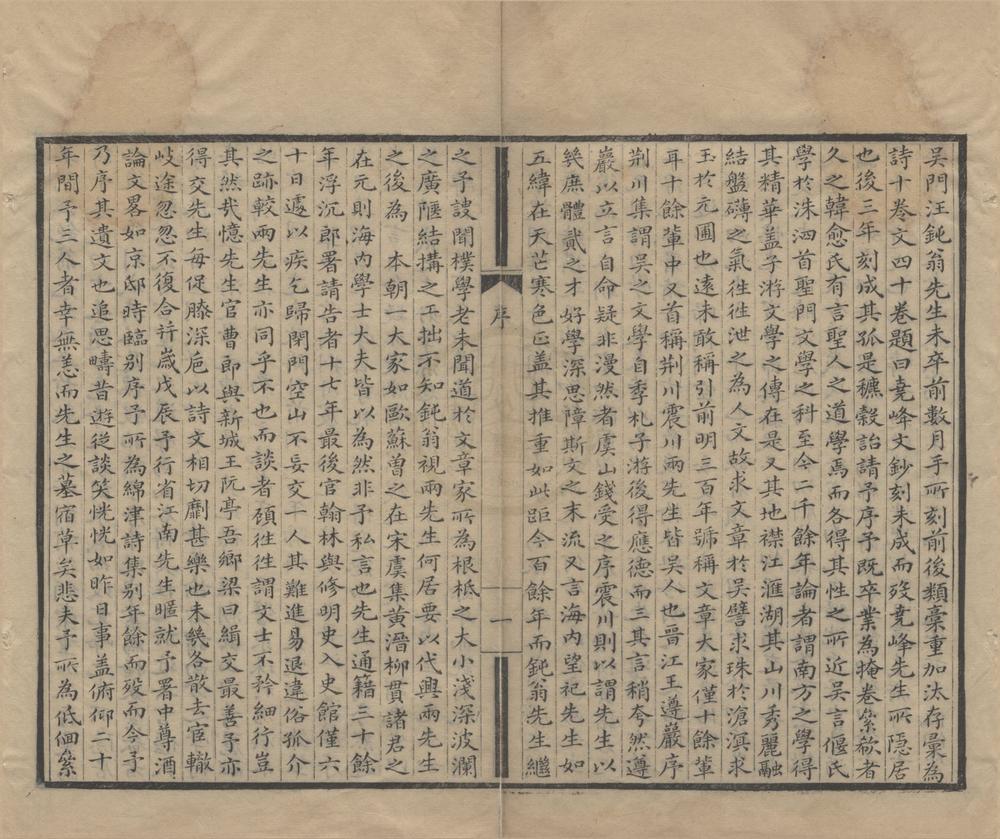 吳門汪鈍翁先生未卒前數月手所刻前後類稾重加汰存彙為
詩十卷文四十卷題曰堯峰文鈔刻未成而歿堯峰先生所隱居
也後三年刻成其孤是穮穀詒請予序予既卒業為掩卷縈欷者
久之韓愈氏有言聖人之道學焉而各得其性之所近吳言偃氏
學於洙泗首聖門文學之科至今二千餘年論者謂南方之學得
其精華盖子游文學之傳在是又其地襟江滙湖其山川秀麗融
結盤礴之氣徃徃泄之為人文故求文章於吳譬求珠於滄溟求
玉於元圃也遠未敢稱引前明三百年號稱文章大家僅十餘軰
耳十餘軰中又首稱荆川震川兩先生皆吳人也晉江王遵巖序
荆川集謂吳之文學自季札子游後得應德而三其言稍夸然遵
巖以立言自命疑非漫然者虞山錢受之序震川則以謂先生以
幾庶體貳之才好學深思障斯文之末流又言海内望祀先生如
五緯在天芒寒色正盖其推重如此距今百餘年而鈍翁先生繼
序
一
之予謏聞樸學老未聞道於文章家所為根柢之大小淺深波瀾
之廣陿結搆之工拙不知鈍翁視兩先生何居要以代興兩先生
之後為 本朝一大家如歐蘇曾之在宋虞集黃溍柳貫諸君之
在元則海内學士大夫皆以為然非予私言也先生通籍三十餘
年浮沉郎署請告者十七年最後官翰林與修明史入史館僅六
十日遽以疾乞歸閉門空山不妄交一人其難進易退違俗孤介
之跡較兩先生亦同乎不也而談者頋徃徃謂文士不矜細行豈
其然㢤憶先生官曹郎與新城王阮亭吾鄉梁曰緝交最善予亦
得交先生每促膝深巵以詩文相切劘甚樂也未幾各散去宦轍
岐途忽忽不復合并歲戊辰予行省江南先生暱就予署中尊酒
論文畧如京邸時臨别序予所為綿津詩集别年餘而歿而今予
乃序其遺文也追思疇昔遊從談笑恍恍如昨日事盖俯仰二十
年間予三人者幸無恙而先生之墓宿草矣悲夫予所為低佪縈